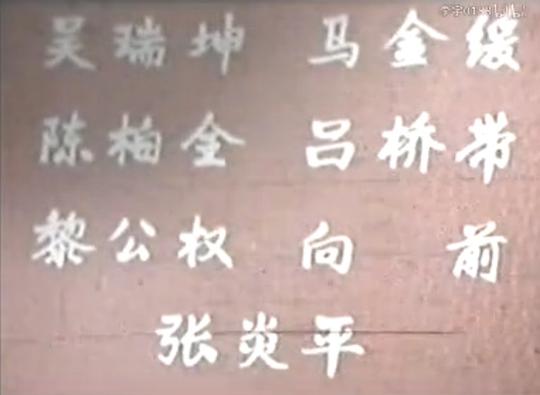 吴瑞坤 马金缓
陈柏全 吕桥带
黎公权 向前
张炎平